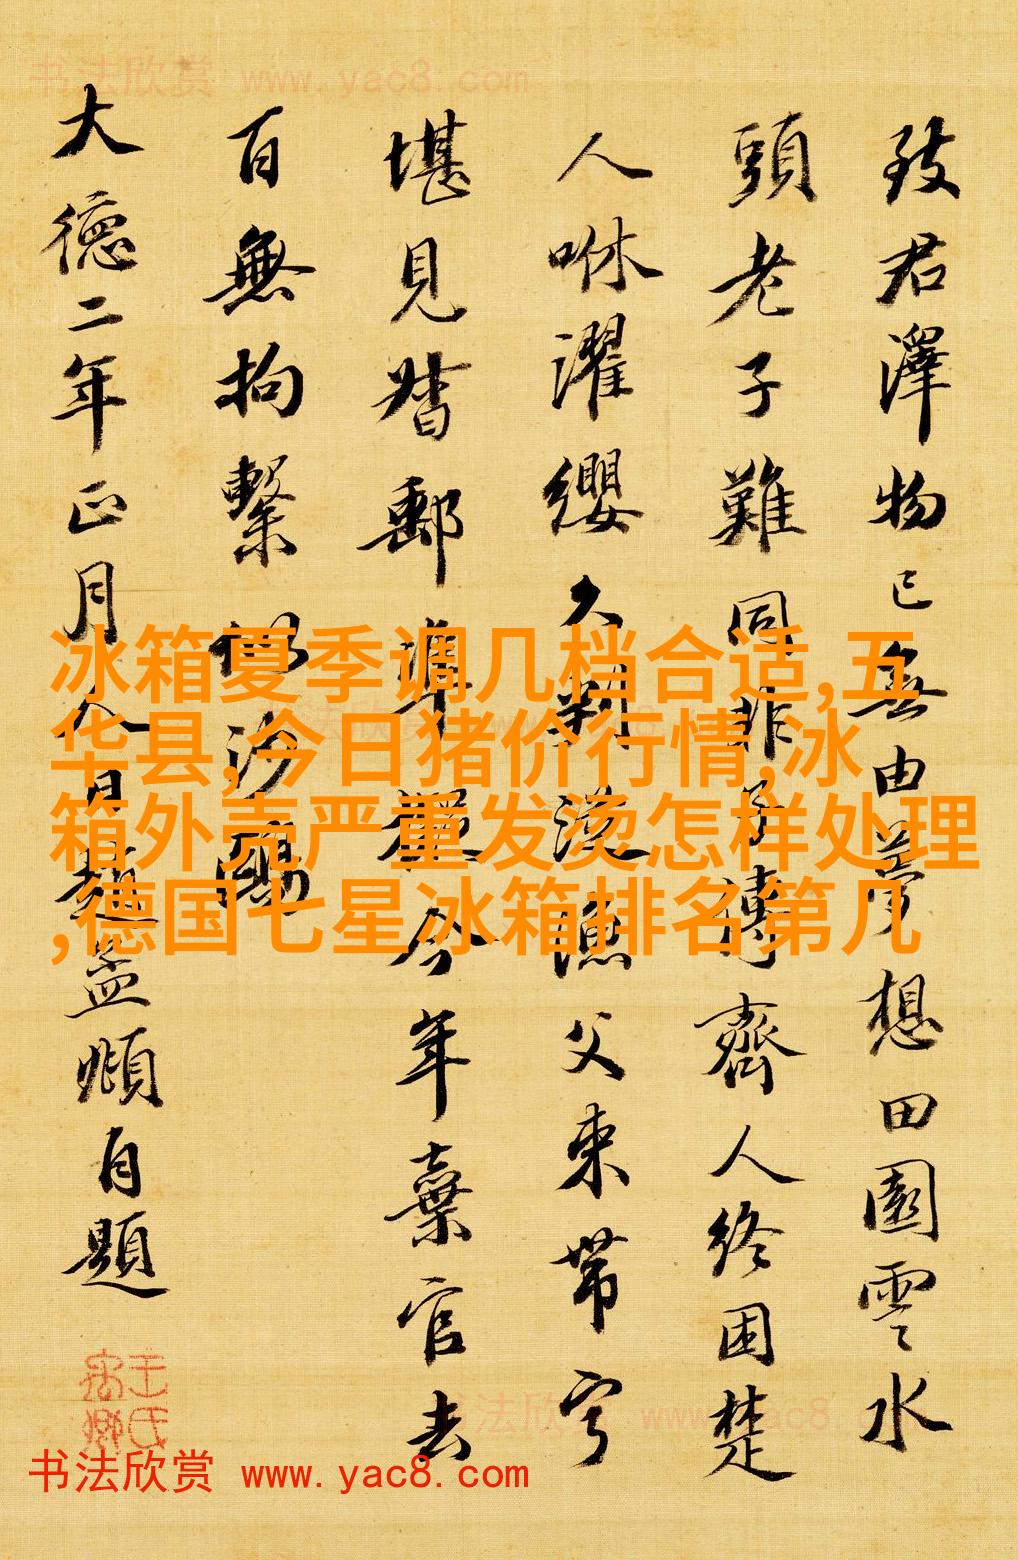 书法欣赏 www.yac8.com
致君澤物已無由夢想田園雲水
頭老子難同非子傳齊人終困楚
人咻濯纓久判從漁父束帶寧
堪見督郵準擬今年棄官去
百無拘繫似沙鷗
大德二年正月人日趙孟頫自題
冰箱夏季调几档合适,五
华县,今日猪价行情,冰
箱外壳严重发烫怎样处理
,德国七星冰箱排名第几
书法欣赏 www.yac8.com